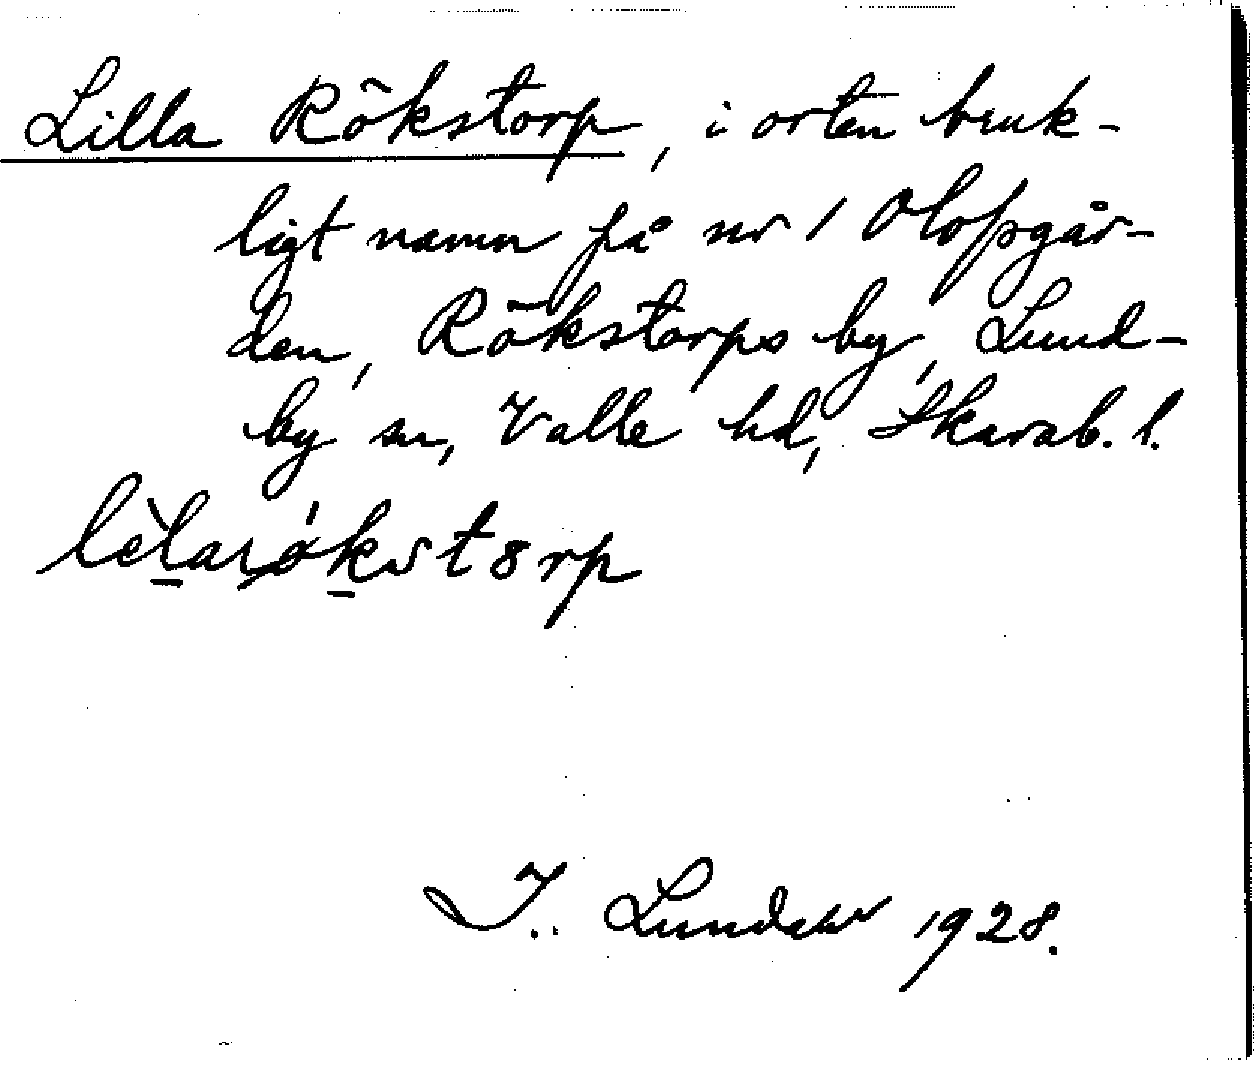 Lilla Rökstorp, i orten bruk-
ligt namn på nr 1 Olofsgår-
den, Rökstorps by, Lund-
by sn, Valle hd, Skarab. l.
lèlarókstorp
I. Lundahl 1928.